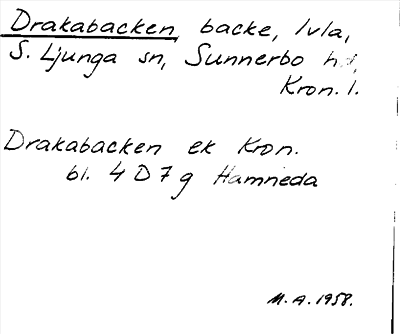 Drakabacken, backe, Ivla,
S. Ljunga sn, Sunnerbo hd,
Kron. l.
Drakabacken ek Kron.
bl. 4 D 7 g Hamneda
M. A. 1958.